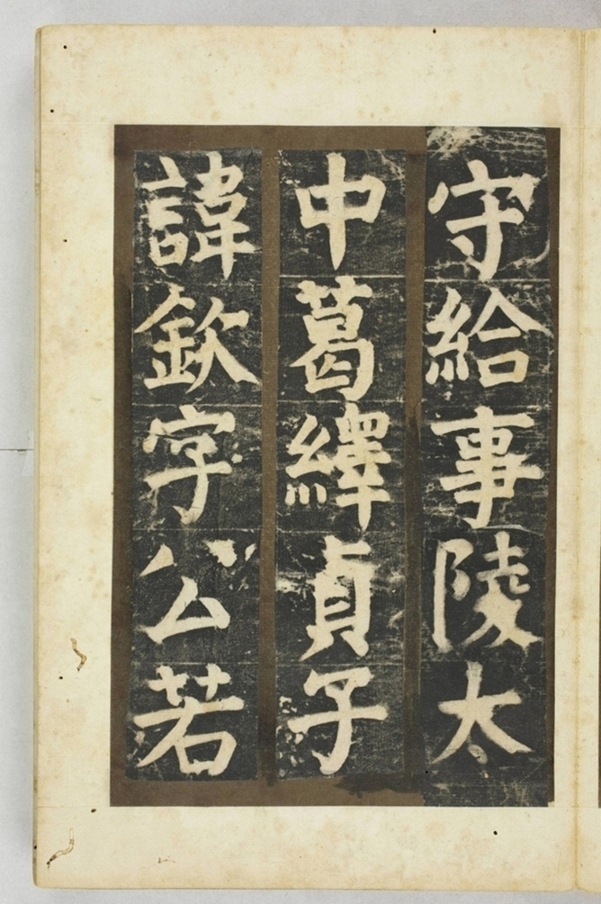 守給事陵太
中葛繹貞子
諱欽字公若